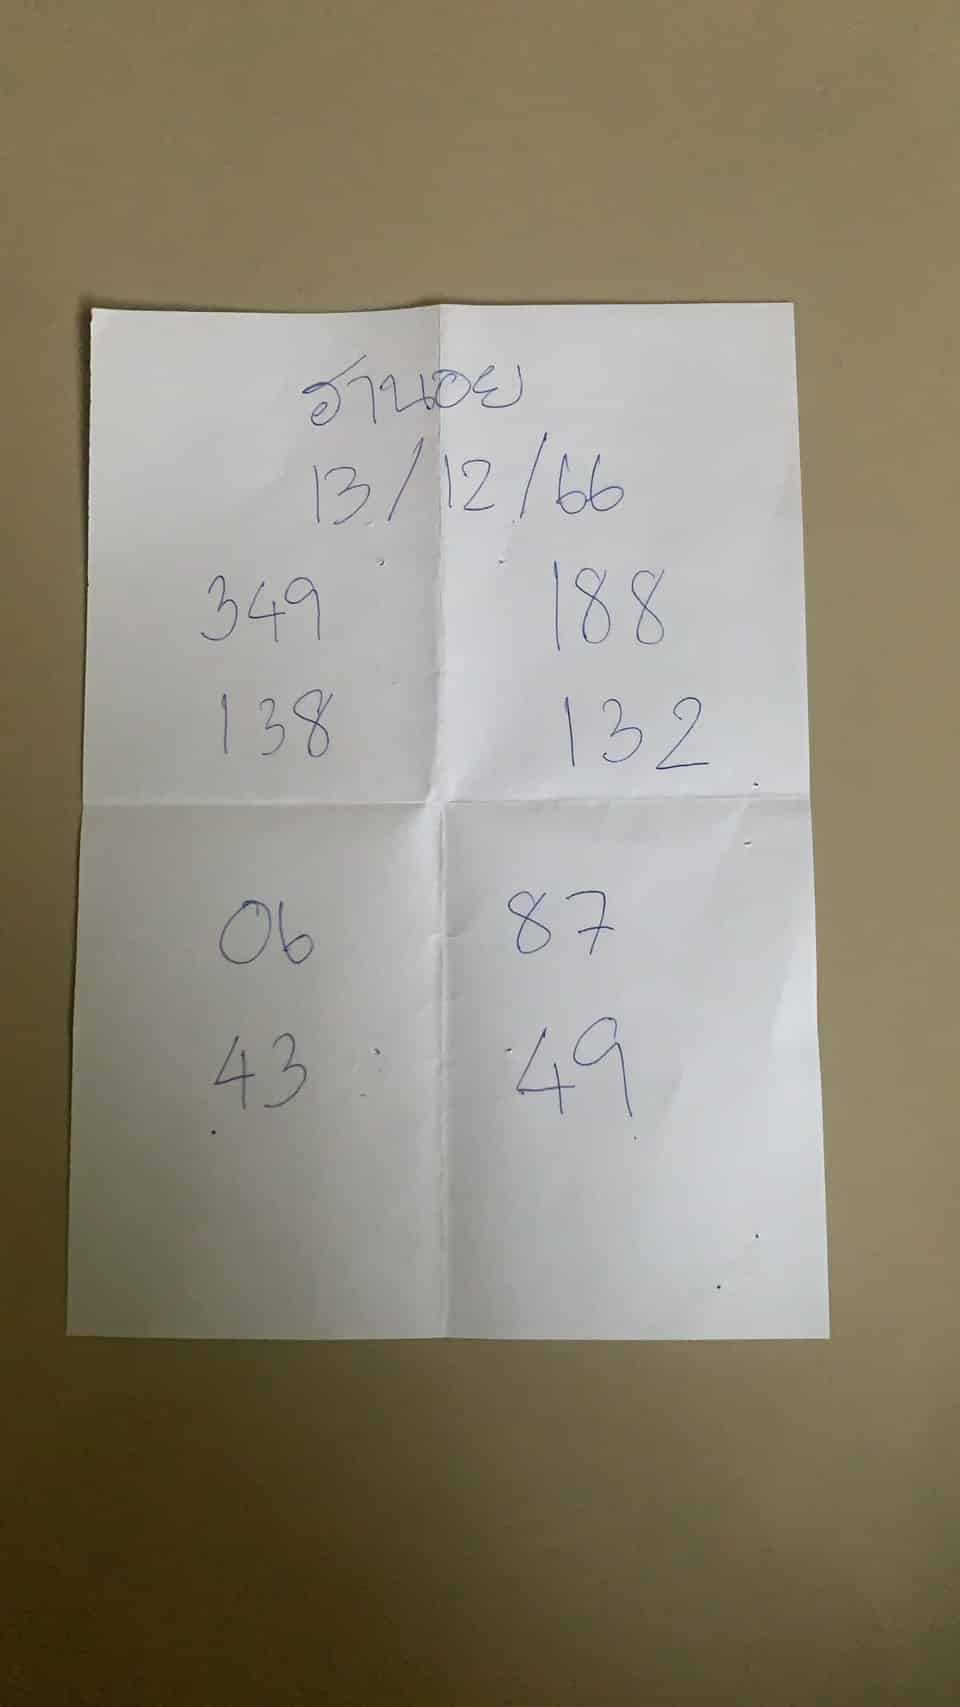 ฮานอย
13/12/66
349 188
138 132
06 87
43 49